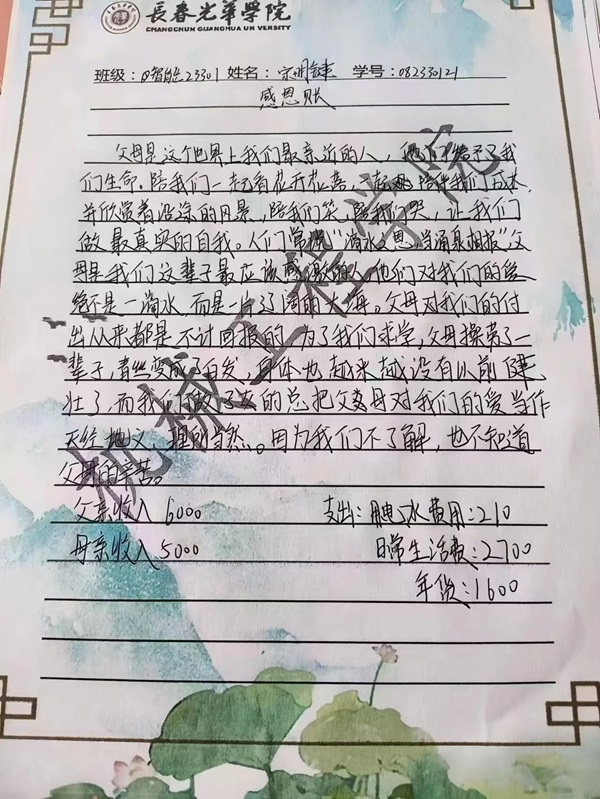 長春光華學院
CHANGCHUN GUANGHUA UNIVERSITY
班级：智能23301 姓名： 学号：082330121
感恩账
父母是这个世界上我们最亲近的人，他们给予了我
们生命，陪我们一起看花开花落，一起陪伴我们成长，
并欣赏着沿途的风景，陪我们笑，陪我们哭，让我们
做最真实的自我。人们常说"滴水之恩，当涌泉相报"父
母是我们这辈子最应该感激的人他们对我们的爱
绝不是一滴水，而是一片辽阔的大海。父母对我们的付
出从来都是不计回报的，为了我们求学，父母操劳了一
辈子，青丝变成了白发，身体也越来越没有以前健
壮了，而我们做子女的总把父母对我们的爱当作
天经地义，理所当然。因为我们不了解，也不知道
父母的辛苦。
父亲收入 6000 支出：水费用：210
母亲收入 5000 日常生活费：2700
年货：1600
机械工程学院